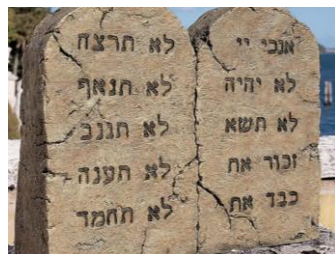 אנכי יי
לא יהיה
לא תשא
זכור את
כבד את
לא תרצח
לא תנאף
לא תגנב
לא תענה
לא תחמד